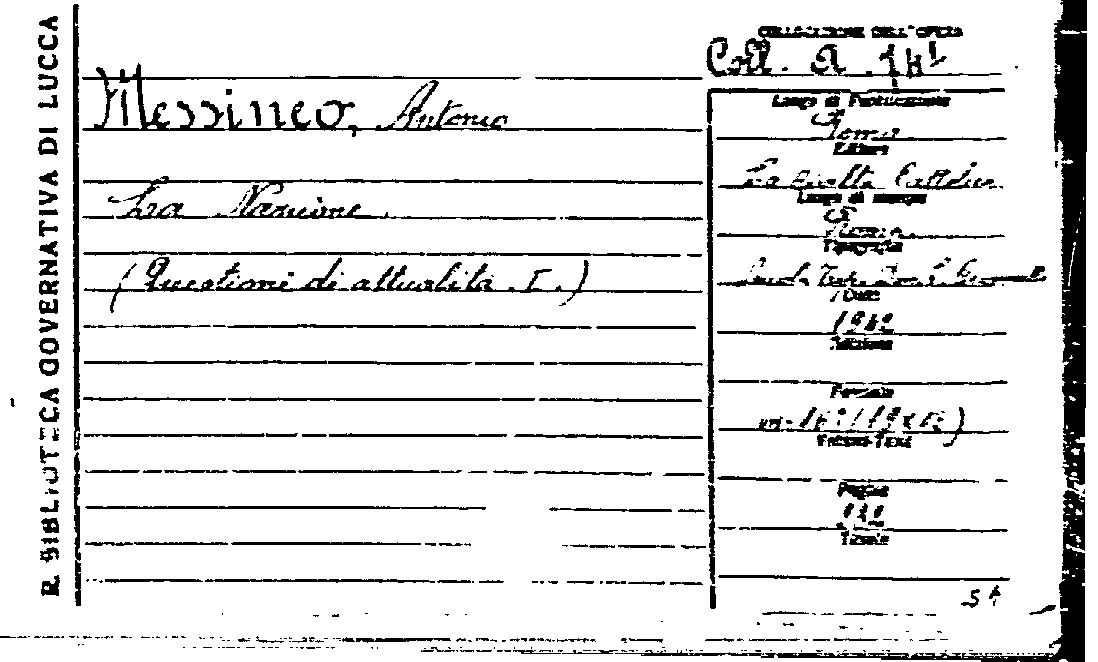 R. BIBLIOTECA GOVERNATIVA DI LUCCA
COLLOCAZIONE DELL'OPERA
Coll. A.
Messineo, Antonio
La Nazione.
(Questioni di attualità. I.)
Luogo di Pubblicazione
Roma
Editore
La Civiltà Cattolica
Luogo di stampa
Roma
Tipografia
Data
1942
Edizione
Formato
in-16°(19x12)
Pagine
Tavole